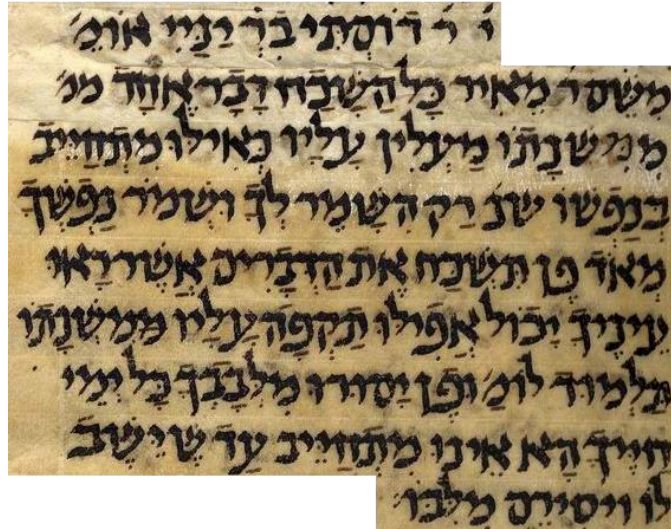 י ר׳ דוסתי בר יניי אומ׳
משם ר׳ מאיר כל השכח דבר אחד ממ׳
ממשנתו מעלין עליו כאילו מתחייב
בנפשו שנ׳ רק השמר לך ושמר נפשך
מאד פן תשכח את הדברים אשר ראו
עיניך יכול אפילו תקפה עליו ממשנתו
תלמוד לומ׳ ופן יסורו מלבבך כל ימי
חייך הא אינו מתחייב עד שישב
לו ויסירם מלבו